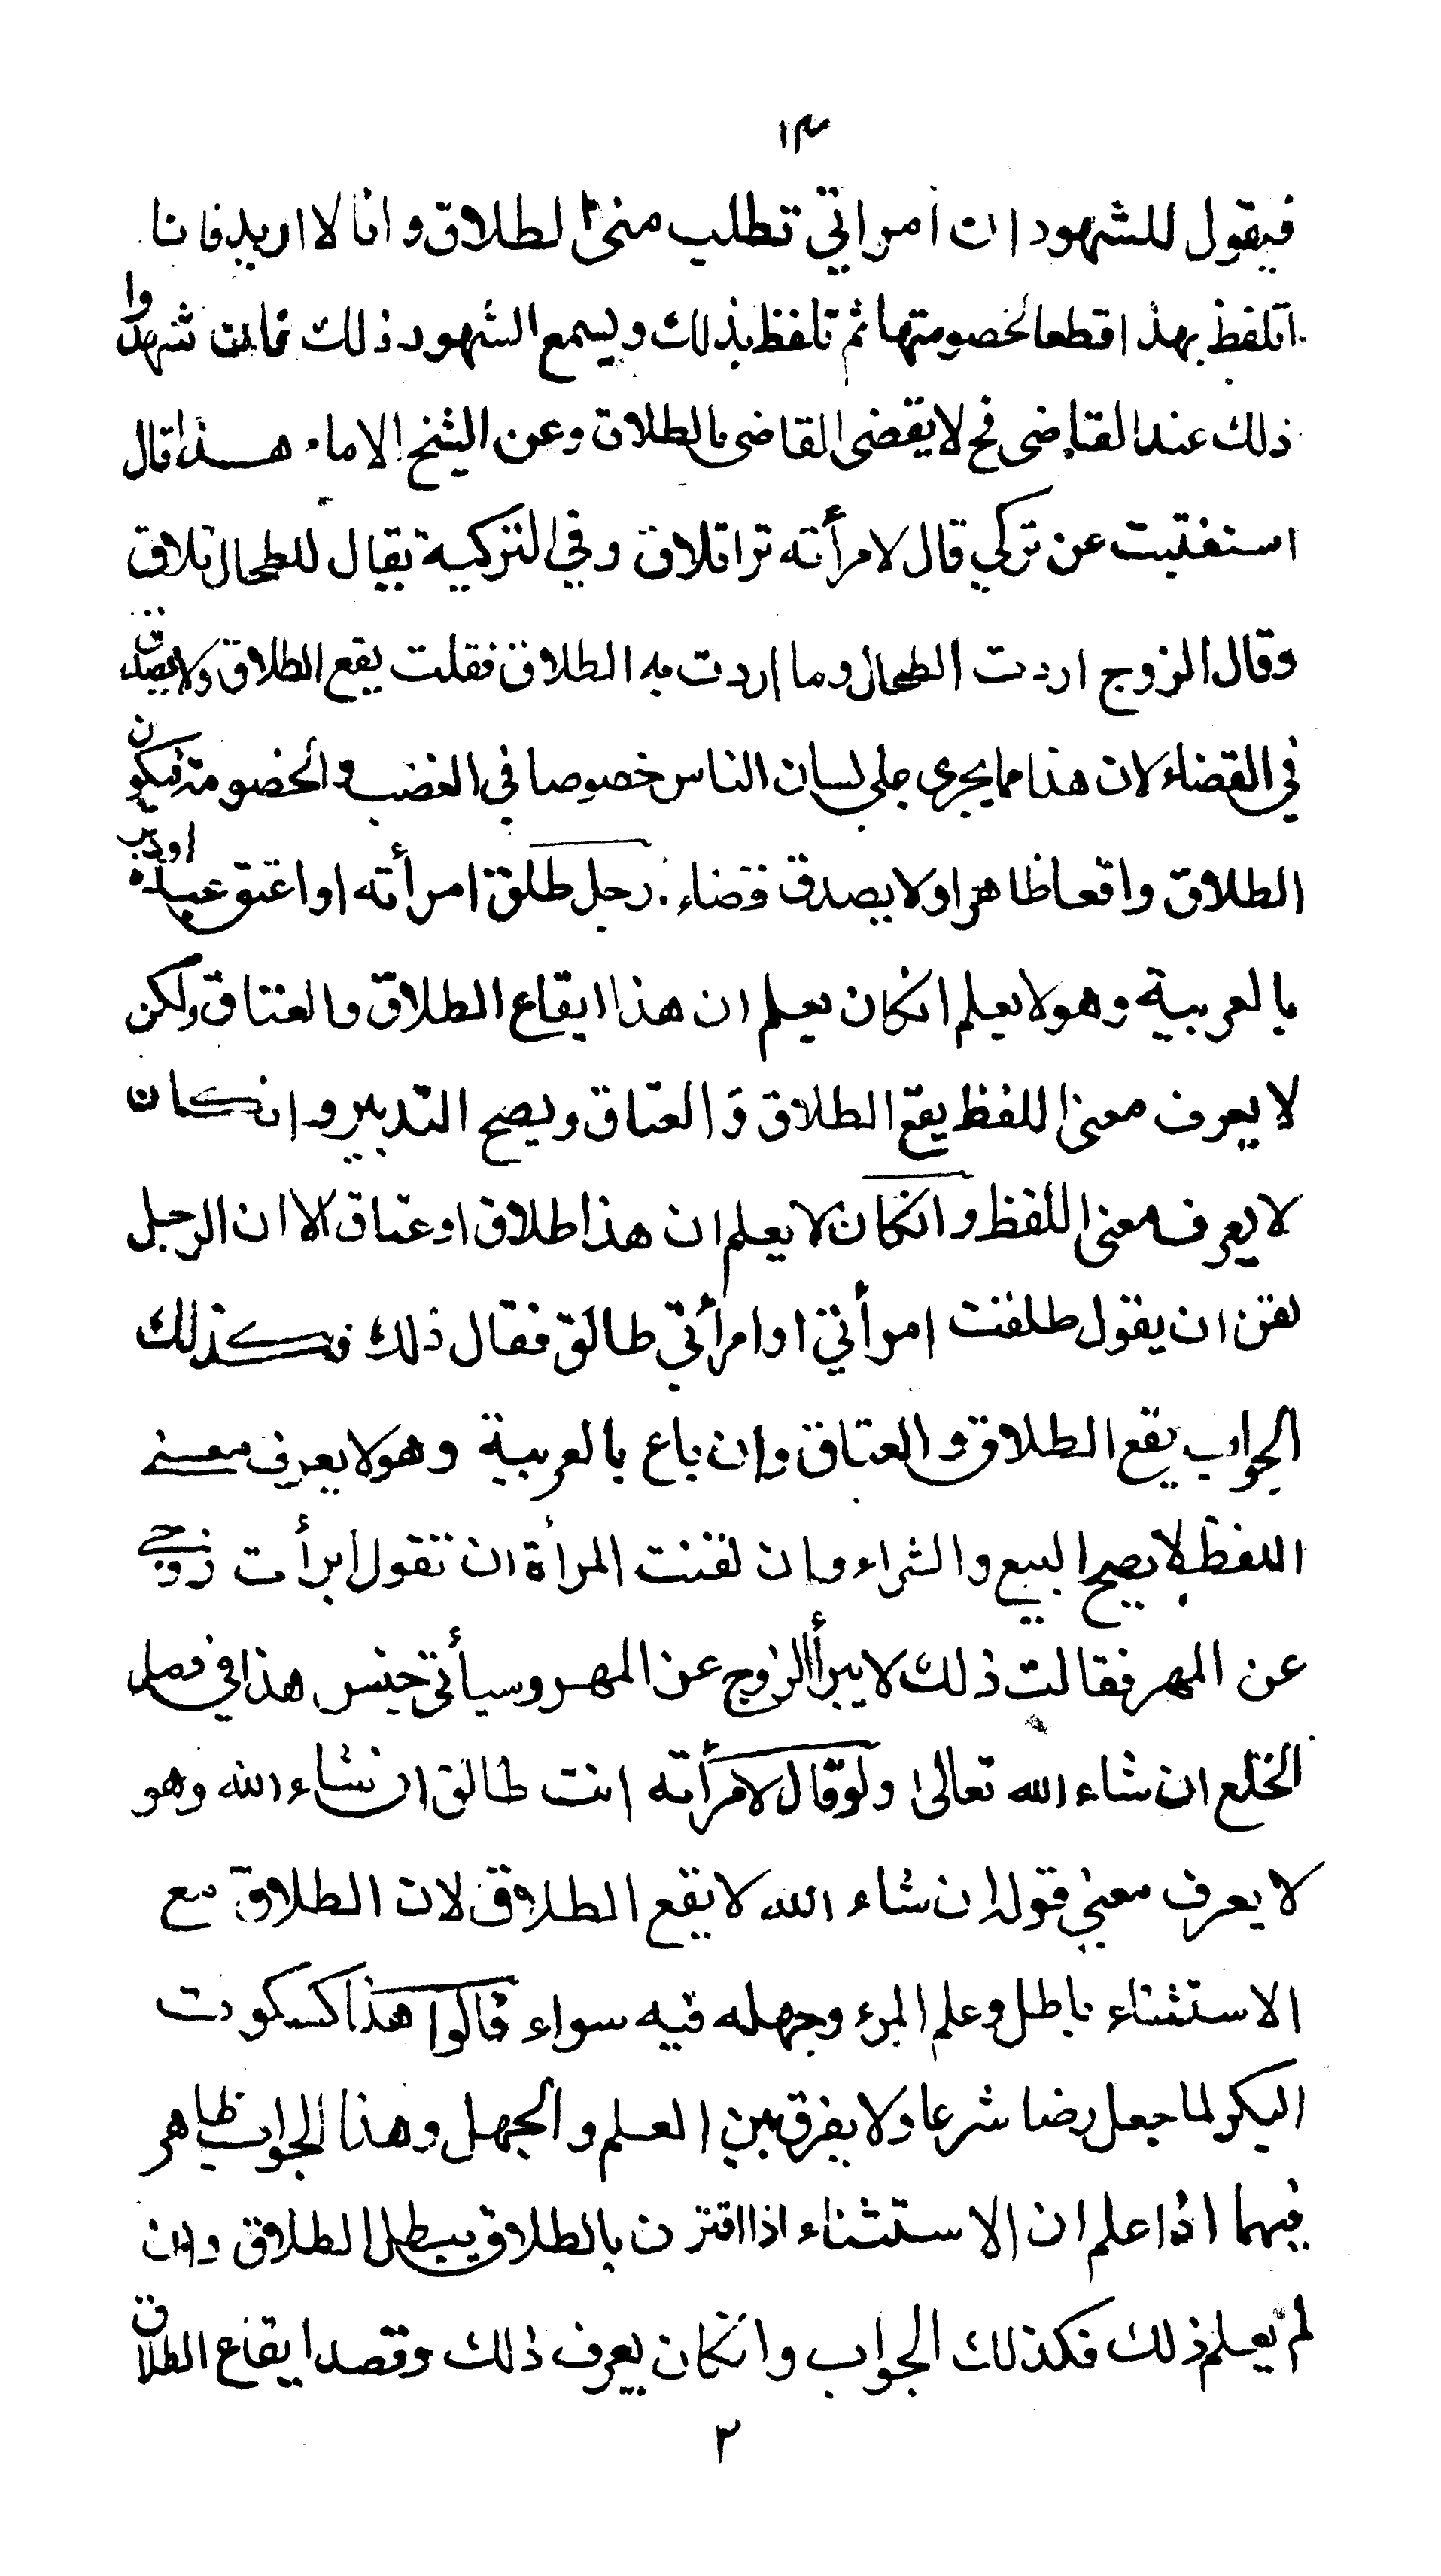 ١٣
فيقول للشهود ان امراتي تطلب مني الطلاق وانا لا اريد فانا
اتلفظ بهذا قطعا لخصومتها ثم تلفظ بذلك ويسمع الشهود ذلك فان شهدوا
ذلك عند القاضي فح لا يقضي القاضي بالطلاق وعن الشيخ الامام هذا قال
استفتيت عن تركي قال لامرأته ترا تلاق وفي التركية يقال للطحال تلاق
وقال الزوج اردت الطحال وما اردت به الطلاق فقلت يقع الطلاق ولا يصدق
في القضاء لان هذا مما يجري على لسان الناس خصوصا في الغضب والخصومة فيكون
الطلاق واقعا ظاهرا ولا يصدق قضاء . رجل طلق امرأته او اعتق عبده او دبر
بالعربية وهو لا يعلم انكان يعلم ان هذا ايقاع الطلاق والعتاق ولكن
لا يعرف معنى اللفظ يقع الطلاق و العتاق ويصح التدبير وانكان
لا يعرف معنى اللفظ وانكان لا يعلم ان هذا طلاق او عتاق الا ان الرجل
لقن ان يقول طلقت امرأتي او امرأتي طالق فقال ذلك فكذلك
الجواب يقع الطلاق والعتاق وان باع بالعربية وهو لا يعرف معنى
اللفظ لا يصح البيع والشراء وان لقنت المرأة ان تقول ابرأت زوجي
عن المهر فقالت ذلك لا يبرأ الزوج عن المهر وسيأتي جنس هذا في فصل
الخلع ان شاء الله تعالى ولو قال لامرأته انت طالق ان شاء الله وهو
لا يعرف معنى قوله ان شاء الله لا يقع الطلاق لان الطلاق مع
الاستثناء باطل وعلم المرء وجهله فيه سواء قالوا هذا كسكوت
البكر لما جعل رضا شرعا ولا يفرق بين العلم والجهل وهذا الجواب ظاهر
فيهما اذا علم ان الاستثناء اذا اقترن بالطلاق يبطل الطلاق وان
لم يعلم ذلك فكذلك الجواب وانكان يعرف ذلك وقصد ايقاع الطلاق
٢